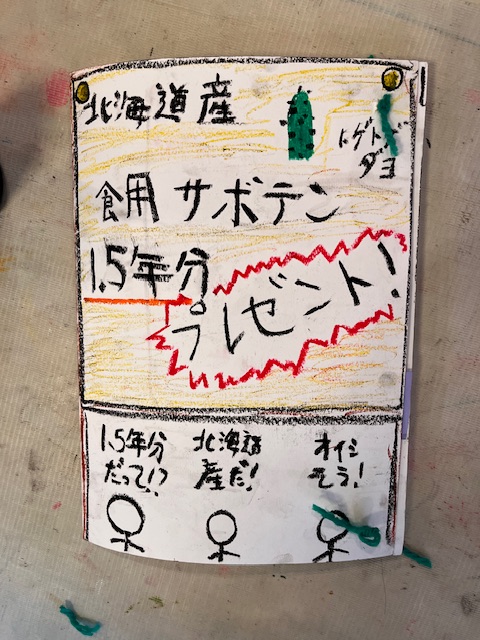 北海道産
トゲトゲダヨ
食用 サボテン
1.5年分
プレゼント!
1.5年分
だって!?
北海道
産だ!
オイシ
そう!